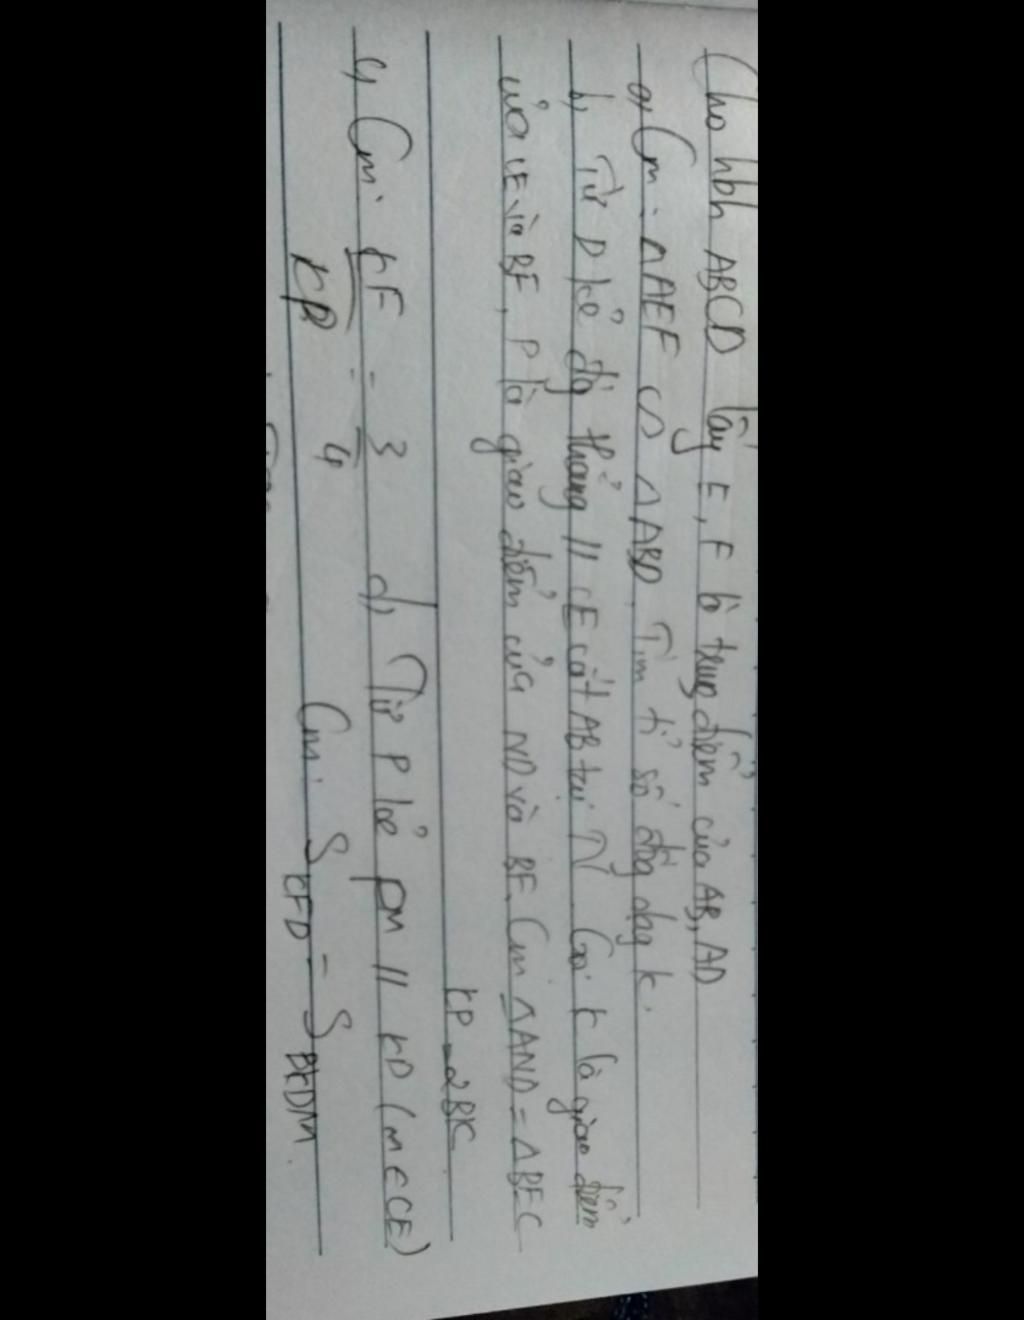 Cho hbh ABCD lấy E, F là trung điểm của AB, AD
a, Cm: ΔAEF ∽ ΔABD. Tìm tỉ số đồng dạng k.
b, Từ D kẻ đg thẳng // CE cắt AB tại N. Gọi K là giao điểm
của CE và BF, P là giao điểm của ND và BF. Cm ΔAND = ΔBEC
KP = 2BK
c, Cm: KF = 3 d, Từ P kẻ PM // KD (M ∈ CE)
KP 4 Cm: S CFD = S BKDM.